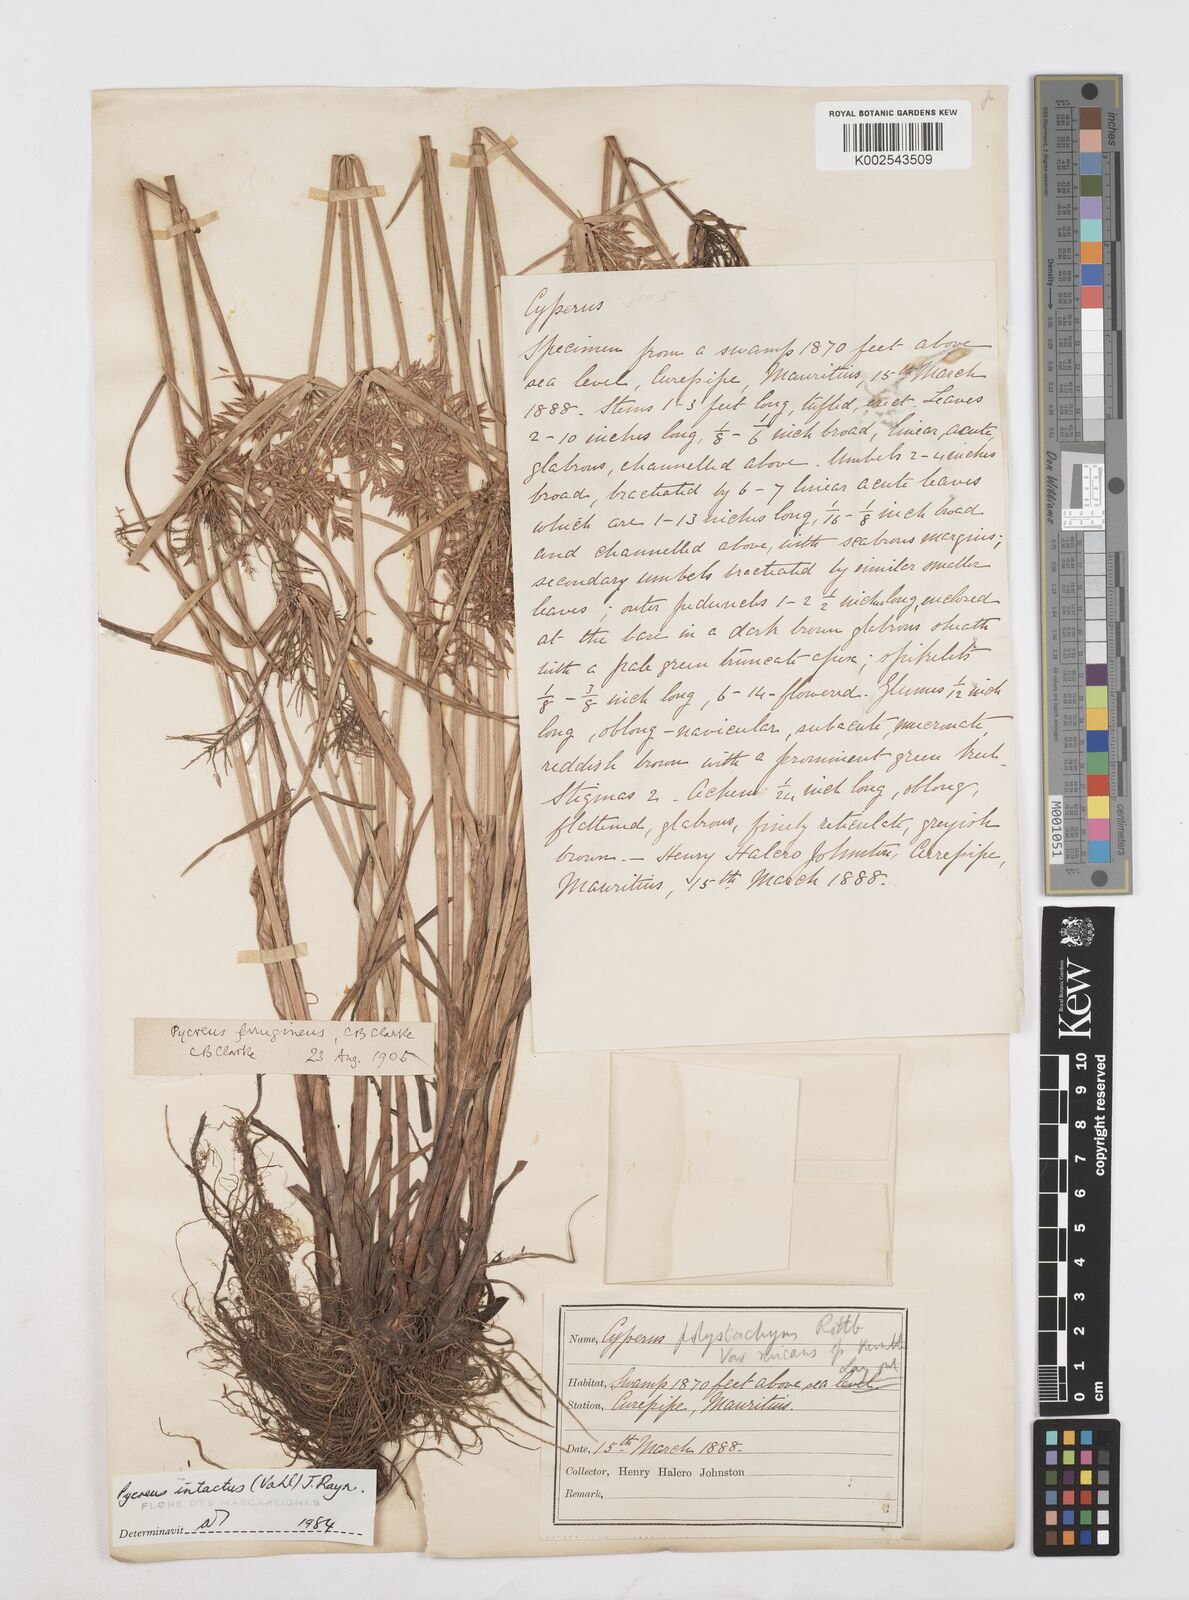 ROYAL BOTANIC GARDENS KEW
K002543509
Cyperus
Specimen from a swamp 1870 feet above
sea level, Curepipe, Mauritius, 15th March
1888. Stems 1-3 feet long, tufted, erect. Leaves
2-10 inches long, 1/8 - 1/6 inch broad, linear, acute,
glabrous, channelled above. Umbels 2-4 inches
broad, bracteated by 6-7 linear acute leaves
which are 1-13 inches long, 1/16 - 1/8 inch broad
and channelled above, with scabrous margins;
secondary umbels bracteated by similar smaller
leaves; outer peduncles 1-2 1/2 inches long, enclosed
at the base in a dark brown glabrous sheath
with a pale green truncate apex; spikelets
1/8 - 3/8 inch long, 6-14-flowered. Glumes 1/12 inch
long, oblong-navicular, subacute, mucronate,
reddish brown with a prominent green keel.
Stigmas 2. Achene 1/24 inch long, oblong,
flattened, glabrous, finely reticulate, greyish
brown. — Henry Halcro Johnston, Curepipe,
Mauritius, 15th March 1888.
Pycreus ferrugineus, CB Clarke
CB Clarke 23 Aug. 1905
Name, Cyperus polystachyus Rottb
Var
Habitat, Swamp 1870 feet above sea level
Station, Curepipe, Mauritius.
Date, 15th March 1888.
Collector, Henry Halcro Johnston
Remark,
Pycreus intactus (Vahl) J. Rayn.
FLORE DES MASCAREIGNES
Determinavit 1984
inches
centimeters
Density
Don Williams
M001051
Kew
Royal Botanic Gardens
copyright reserved
0 1 2 3 4 5 6 7 8 9 10
cm